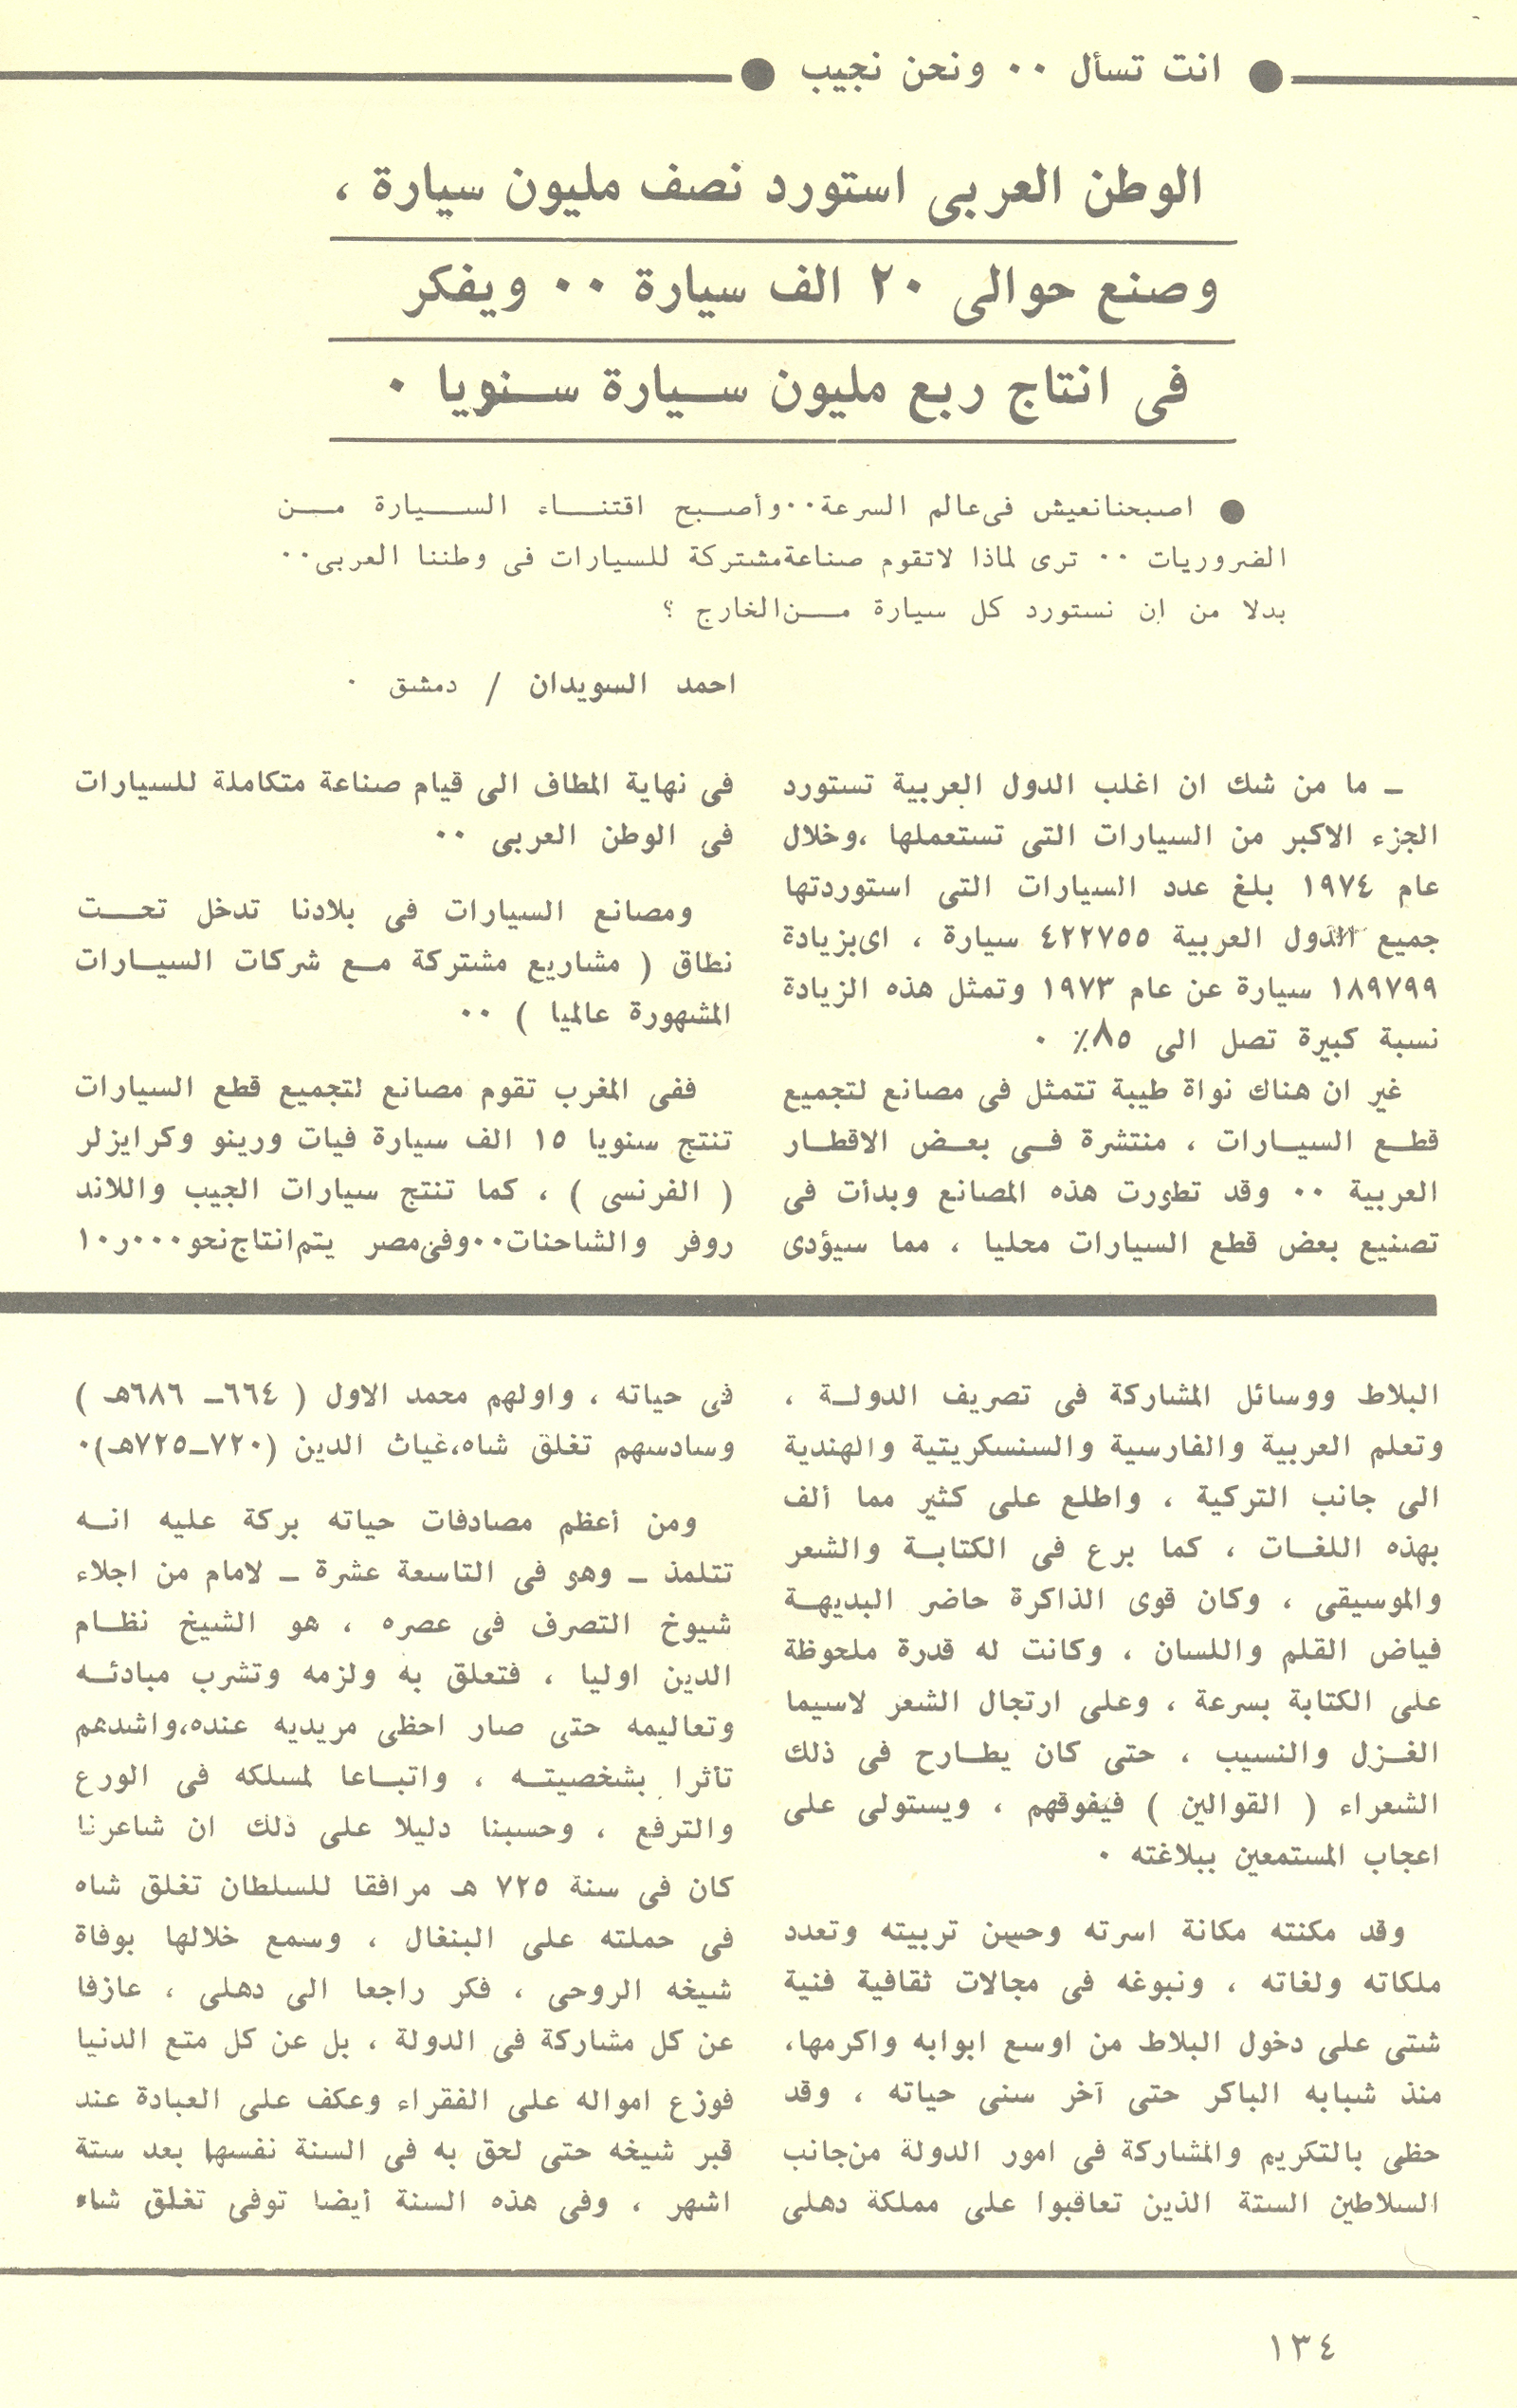 انت تسأل ٠٠ ونحن نجيب
الوطن العربى استورد نصف مليون سيارة ،
وصنع حوالى ٢٠ الف سيارة ٠٠ ويفكر
فى انتاج ربع مليون سيارة سنويا ٠
● اصبحنا نعيش فى عالم السرعة ٠٠ وأصبح اقتناء السيارة من
الضروريات ٠٠ ترى لماذا لاتقوم صناعة مشتركة للسيارات فى وطننا العربى ٠٠
بدلا من ان نستورد كل سيارة من الخارج ؟
احمد السويدان / دمشق ٠
ـ ما من شك ان اغلب الدول العربية تستورد
الجزء الاكبر من السيارات التى تستعملها ،وخلال
عام ١٩٧٤ بلغ عدد السيارات التى استوردتها
جميع الدول العربية ٤٢٢٧٥٥ سيارة ، اى بزيادة
١٨٩٧٩٩ سيارة عن عام ١٩٧٣ وتمثل هذه الزيادة
نسبة كبيرة تصل الى ٨٥٪ ٠
غير ان هناك نواة طيبة تتمثل فى مصانع لتجميع
قطع السيارات ، منتشرة فى بعض الاقطار
العربية ٠٠ وقد تطورت هذه المصانع وبدأت فى
تصنيع بعض قطع السيارات محليا ، مما سيؤدى
فى نهاية المطاف الى قيام صناعة متكاملة للسيارات
فى الوطن العربى ٠٠
ومصانع السيارات فى بلادنا تدخل تحت
نطاق ( مشاريع مشتركة مع شركات السيارات
المشهورة عالميا ) ٠٠
ففى المغرب تقوم مصانع لتجميع قطع السيارات
تنتج سنويا ١٥ الف سيارة فيات ورينو وكرايزلر
( الفرنسى ) ، كما تنتج سيارات الجيب واللاند
روفر والشاحنات ٠٠ وفى مصر يتم انتاج نحو ٠٠٠ر١٠
البلاط ووسائل المشاركة فى تصريف الدولة ،
وتعلم العربية والفارسية والسنسكريتية والهندية
الى جانب التركية ، واطلع على كثير مما ألف
بهذه اللغات ، كما برع فى الكتابة والشعر
والموسيقى ، وكان قوى الذاكرة حاضر البديهة
فياض القلم واللسان ، وكانت له قدرة ملحوظة
على الكتابة بسرعة ، وعلى ارتجال الشعر لاسيما
الغزل والنسيب ، حتى كان يطارح فى ذلك
الشعراء ( القوالين ) فيفوقهم ، ويستولى على
اعجاب المستمعين ببلاغته ٠
وقد مكنته مكانة اسرته وحسن تربيته وتعدد
ملكاته ولغاته ، ونبوغه فى مجالات ثقافية فنية
شتى على دخول البلاط من اوسع ابوابه واكرمها،
منذ شبابه الباكر حتى آخر سنى حياته ، وقد
حظى بالتكريم والمشاركة فى امور الدولة من جانب
السلاطين الستة الذين تعاقبوا على مملكة دهلى
فى حياته ، واولهم محمد الاول ( ٦٦٤ـ ٦٨٦هـ )
وسادسهم تغلق شاه،غياث الدين (٧٢٠ـ٧٢٥هـ)٠
ومن أعظم مصادفات حياته بركة عليه انه
تتلمذ ـ وهو فى التاسعة عشرة ـ لامام من اجلاء
شيوخ التصرف فى عصره ، هو الشيخ نظام
الدين اوليا ، فتعلق به ولزمه وتشرب مبادئه
وتعاليمه حتى صار احظى مريديه عنده،واشدهم
تأثرا بشخصيته ، واتباعا لمسلكه فى الورع
والترفع ، وحسبنا دليلا على ذلك ان شاعرنا
كان فى سنة ٧٢٥ هـ مرافقا للسلطان تغلق شاه
فى حملته على البنغال ، وسمع خلالها بوفاة
شيخه الروحى ، فكر راجعا الى دهلى ، عازفا
عن كل مشاركة فى الدولة ، بل عن كل متع الدنيا
فوزع امواله على الفقراء وعكف على العبادة عند
قبر شيخه حتى لحق به فى السنة نفسها بعد ستة
اشهر ، وفى هذه السنة أيضا توفى تغلق شاه
١٣٤